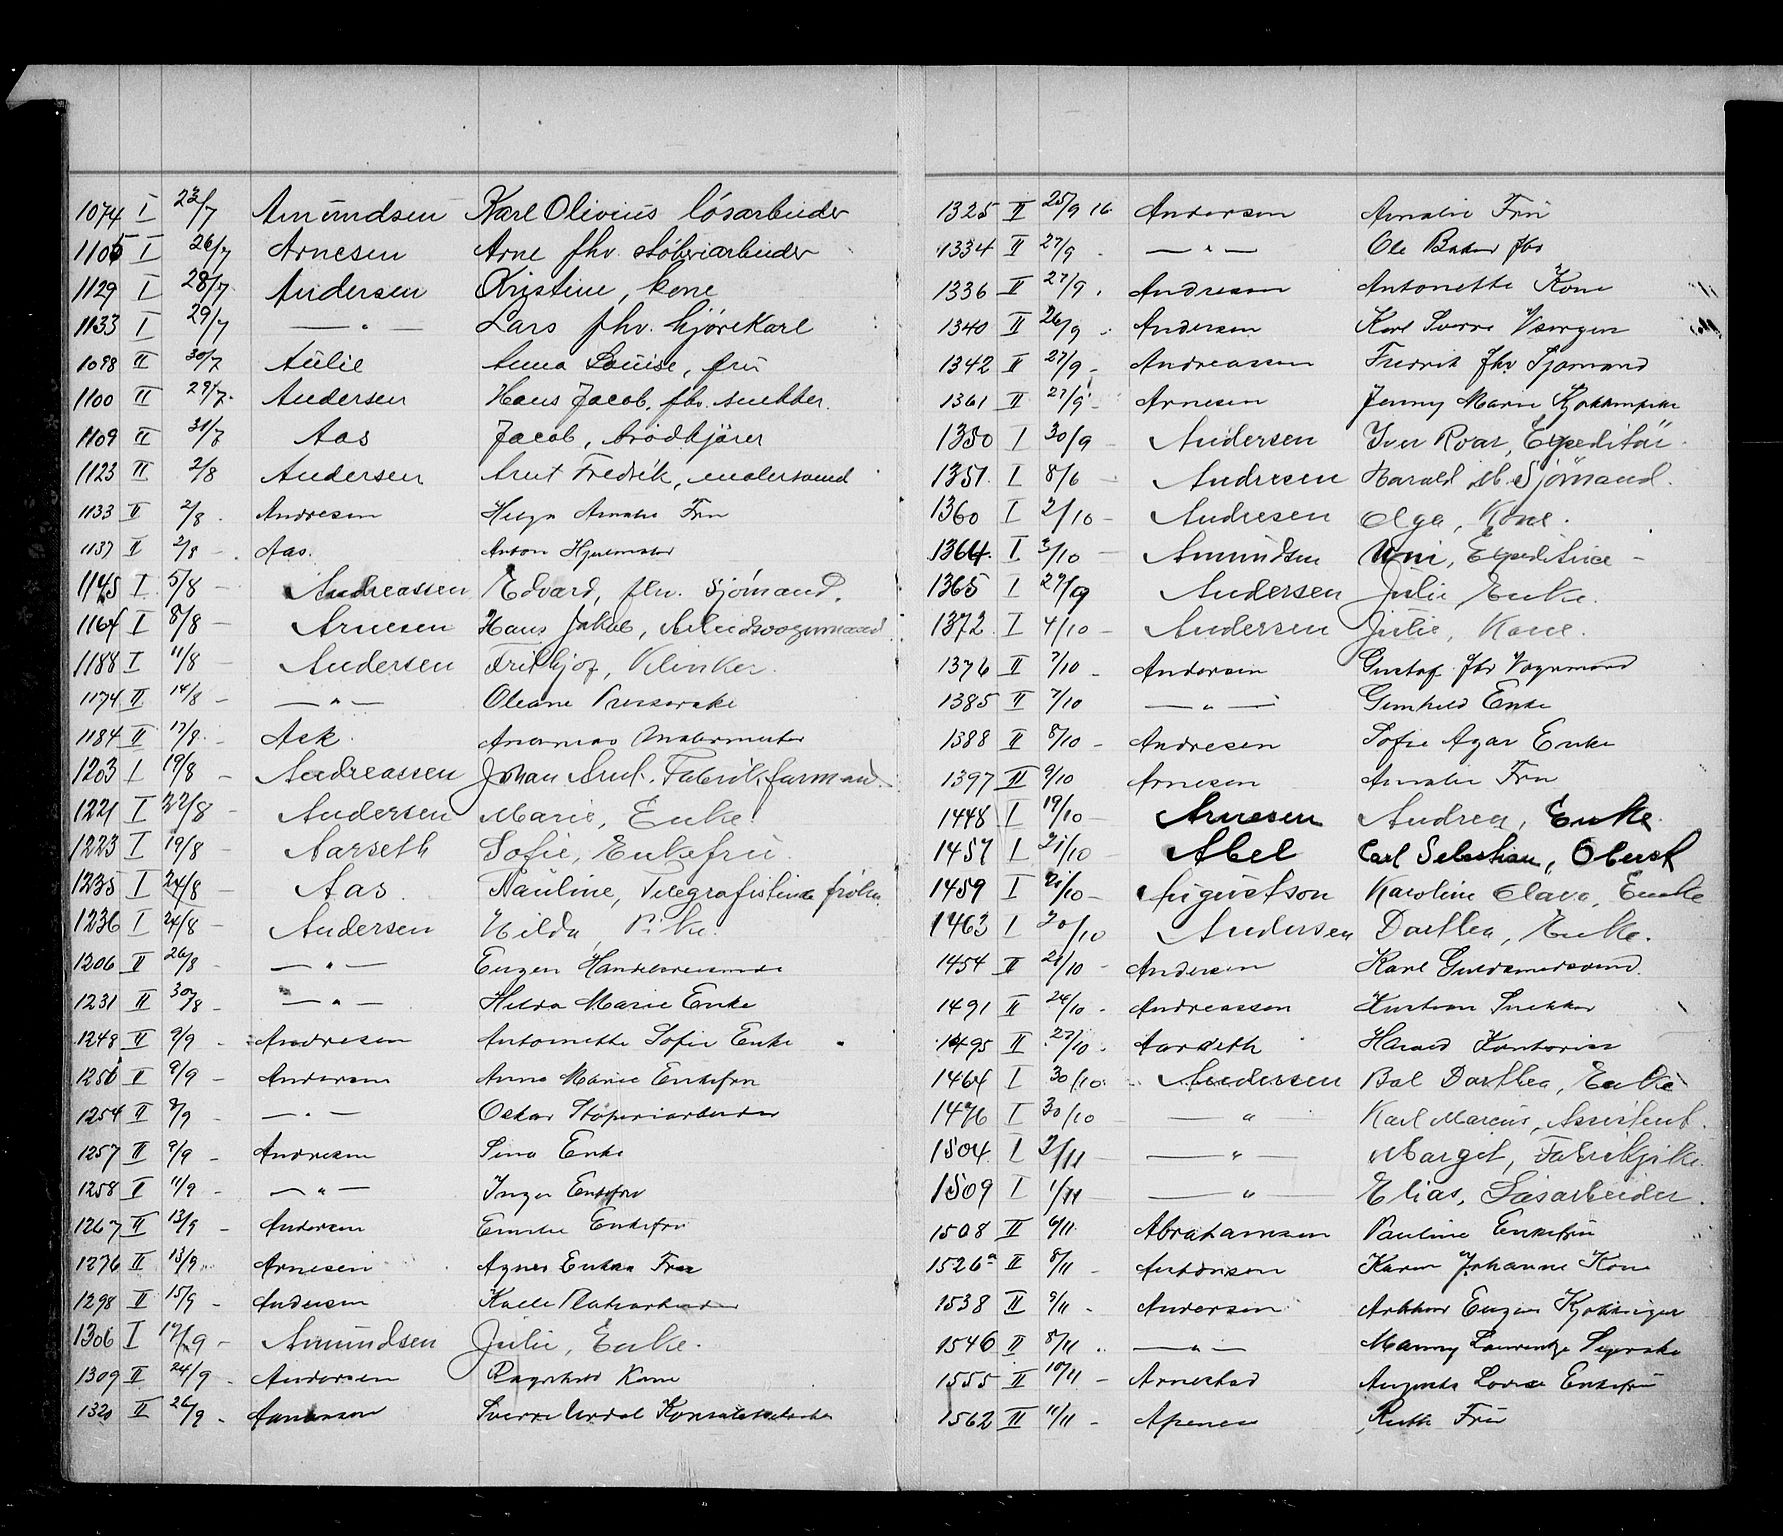 1074 I 23/7 Amundsen Karl Olivius løsarbeider
1105 I 26/7 Arnesen Arne fhv. støberiarbeider
1129 I 28/7 Andersen Kristine, kone
1133 I 29/7 — " — Lars fhv. kjørekarl
1098 II 30/7 Aulie Anna Louise, fru
1100 II 29/7 Andersen Hans Jacob, fhv. snekker.
1109 II 31/7 Aas Jacob, brødkjører
1123 II 2/8 Andersen Arnt Fredrik, malersvend
1133 II 2/8 Andresen Helga Amalie Fru
1137 II 2/8 Aas. Anton Hjalmar
1145 I 5/8 Andreassen Edvard, fhv. Sjømand.
1164 I 8/8 Arnesen Hans Jakob,
1188 I 11/8 Andersen Frithjof, Klinker.
1174 II 14/8 — " — Oleane
1184 II 17/8 Ask Malermester
1203 I 19/8 Andreassen Johan Arnt.
1221 I 22/8 Andersen Marie, Enke.
1223 I 19/8 Aarseth Sofie, Enkefru.
1235 I 24/8 Aas Pauline, Telegrafistinde frøken
1236 I 24/8 Andersen Hilda Pike.
1206 II 26/8 — " — Eugen Handelsreisende
1231 II 30/8 — " — Hilda Marie Enke
1248 II 9/9 Andresen Antonette Sofie Enke
1250 II 9/9 Andersen Anna Marie Enkefru
1254 II 8/9 — " — Oskar Støperiarbeider
1257 II 9/9 Andresen Sina Enke
1258 II 11/9 — " — Inga Enkefru
1267 II 13/9 Andersen Emilie Enkefru
1276 II 13/9 Arnesen Agnes Fru
1298 II 15/9 Andersen Kalle
1306 I 17/9 Amundsen Julie, Enke.
1309 II 24/9 Andersen Ragnhild Kone
1320 II 26/9 Sverre
1325 II 25/9 16 Andersen Amalie Fru
1334 II 27/9 — " — Ole fhv
1336 II 27/9 Andresen Antonette Kone
1340 II 26/9 Andersen Karl Sverre
1342 II 27/9 Andreassen Fredrik fhv Sjømand
1361 II 27/9 Arnesen Jenny Marie
1350 I 30/9 Andersen Iver Roar, Expeditør.
1351 I 8/6 Andresen Harald M. Sjømand.
1360 I 2/10 Andresen Olga, Kone.
1364 I 3/10 Amundsen Uni, Expeditrice
1365 I 29/9 Andersen Julie Enke.
1372 I 4/10 Andersen Julie, Kone.
1376 II 7/10 Andersen Gustaf fhv Vognmand
1385 II 7/10 — " — Gunhild Enke
1388 II 8/10 Andresen Sofie Agar Enke
1397 II 9/10 Arnesen Amalie Fru
1448 I 19/10 Arnesen Andrea, Enke.
1457 I 21/10 Abel Carl Sebastian, Oberst
1459 I 21/10 Augustson Karoline Clara, Enke
1463 I 20/10 Andersen Dorthea, Enke.
1454 II 21/10 Andersen Karl Guldsmedsvend.
1491 II 24/10 Andreassen Kristian Snekker
1495 II 27/10 Aarseth Harald Kontorist
1464 I 30/10 Andersen Dorthea, Enke
1476 I 30/10 — " Karl Marcus, Assistent.
1504 I 2/11 — " — Margit, Fabrikpike.
1509 I 1/11 — " Elias, Løsarbeider.
1508 II 6/11 Abrahamsen Pauline Enkefru
1526a II 8/11 Antonsen Karen Johanne Kone
1538 II 9/11 Andersen Arthur Eugen
1546 II 8/11 — " — Manny
1555 II 10/11 Arnestad Augusta Lovise Enkefru
1562 II 11/11 Ruth Fru